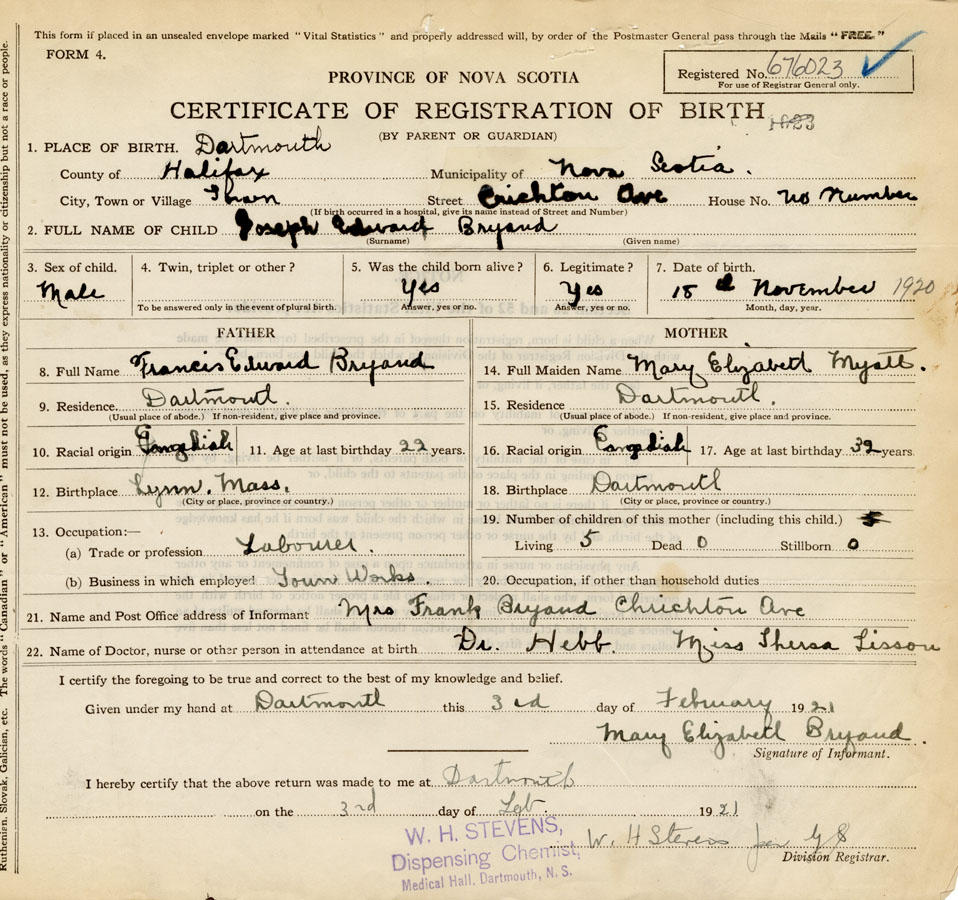 This form if placed in an unsealed envelope marked "Vital Statistics" and properly addressed will, by order of the Postmaster General pass through the Mails "FREE."
FORM 4.
Registered No. 676023
For use of Registrar General only.
PROVINCE OF NOVA SCOTIA
CERTIFICATE OF REGISTRATION OF BIRTH
(BY PARENT OR GUARDIAN)
1. PLACE OF BIRTH. Dartmouth
County of Halifax Municipality of Nova Scotia.
City, Town or Village Street Crichton Ave House No. no Number
(If birth occurred in a hospital, give its name instead of Street and Number)
2. FULL NAME OF CHILD Joseph Edward Bryand
(Surname) (Given name)
3. Sex of child. 4. Twin, triplet or other? 5. Was the child born alive? 6. Legitimate? 7. Date of birth.
Male Yes Yes 18 November 1920
To be answered only in the event of plural birth. Answer, yes or no. Answer, yes or no. Month, day, year.
FATHER MOTHER
8. Full Name Francis Edward Bryand 14. Full Maiden Name Mary Elizabeth Myatt.
9. Residence Dartmouth. 15. Residence Dartmouth.
(Usual place of abode.) If non-resident, give place and province. (Usual place of abode.) If non-resident, give place and province.
10. Racial origin 11. Age at last birthday 22 years. 16. Racial origin 17. Age at last birthday 32 years
12. Birthplace Lynn. Mass. 18. Birthplace Dartmouth
(City or place, province or country.) (City or place, province or country.)
13. Occupation:— 19. Number of children of this mother (including this child.) 5
(a) Trade or profession Labourer. Living 5 Dead 0 Stillborn 0
(b) Business in which employed Town Works. 20. Occupation, if other than household duties
21. Name and Post Office address of Informant Mrs Frank Bryand Chrichton Ave
22. Name of Doctor, nurse or other person in attendance at birth Dr. Hebb. Miss Thersa Sisson
I certify the foregoing to be true and correct to the best of my knowledge and belief.
Given under my hand at Dartmouth this 3rd day of February 1921
Mary Elizabeth Bryand.
Signature of Informant.
I hereby certify that the above return was made to me at Dartmouth
on the 3rd day of 1921
W. H. STEVENS,
Dispensing Chemist,
Medical Hall, Dartmouth, N. S.
W. H Stevens
Division Registrar.
Ruthenian, Slovak, Galician, etc. The words "Canadian" or "American" must not be used, as they express nationality or citizenship but not a race or people.